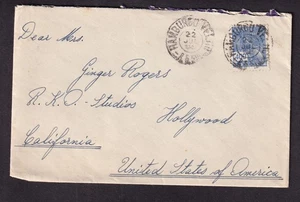 Dear Mrs.
Ginger Rogers
R. K. O. Studios
Hollywood
California
United States of America
HAMBURGO VELHO
22